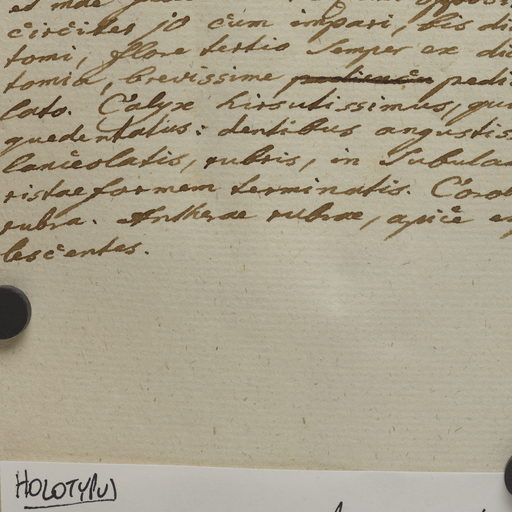 et mae
circites jo cum impari, bis di
tomi, flore tertio semper ex dic
tomia, brevissime pedi
lato. Calyx hirsutissimus, qui
quedentatus: dentibus angustis
lanceolatis, rubris, in subula
ristaeformem terminatis. Corol
rubra. Antherae rubrae, apice
lescentes.
HOLOTYPUS